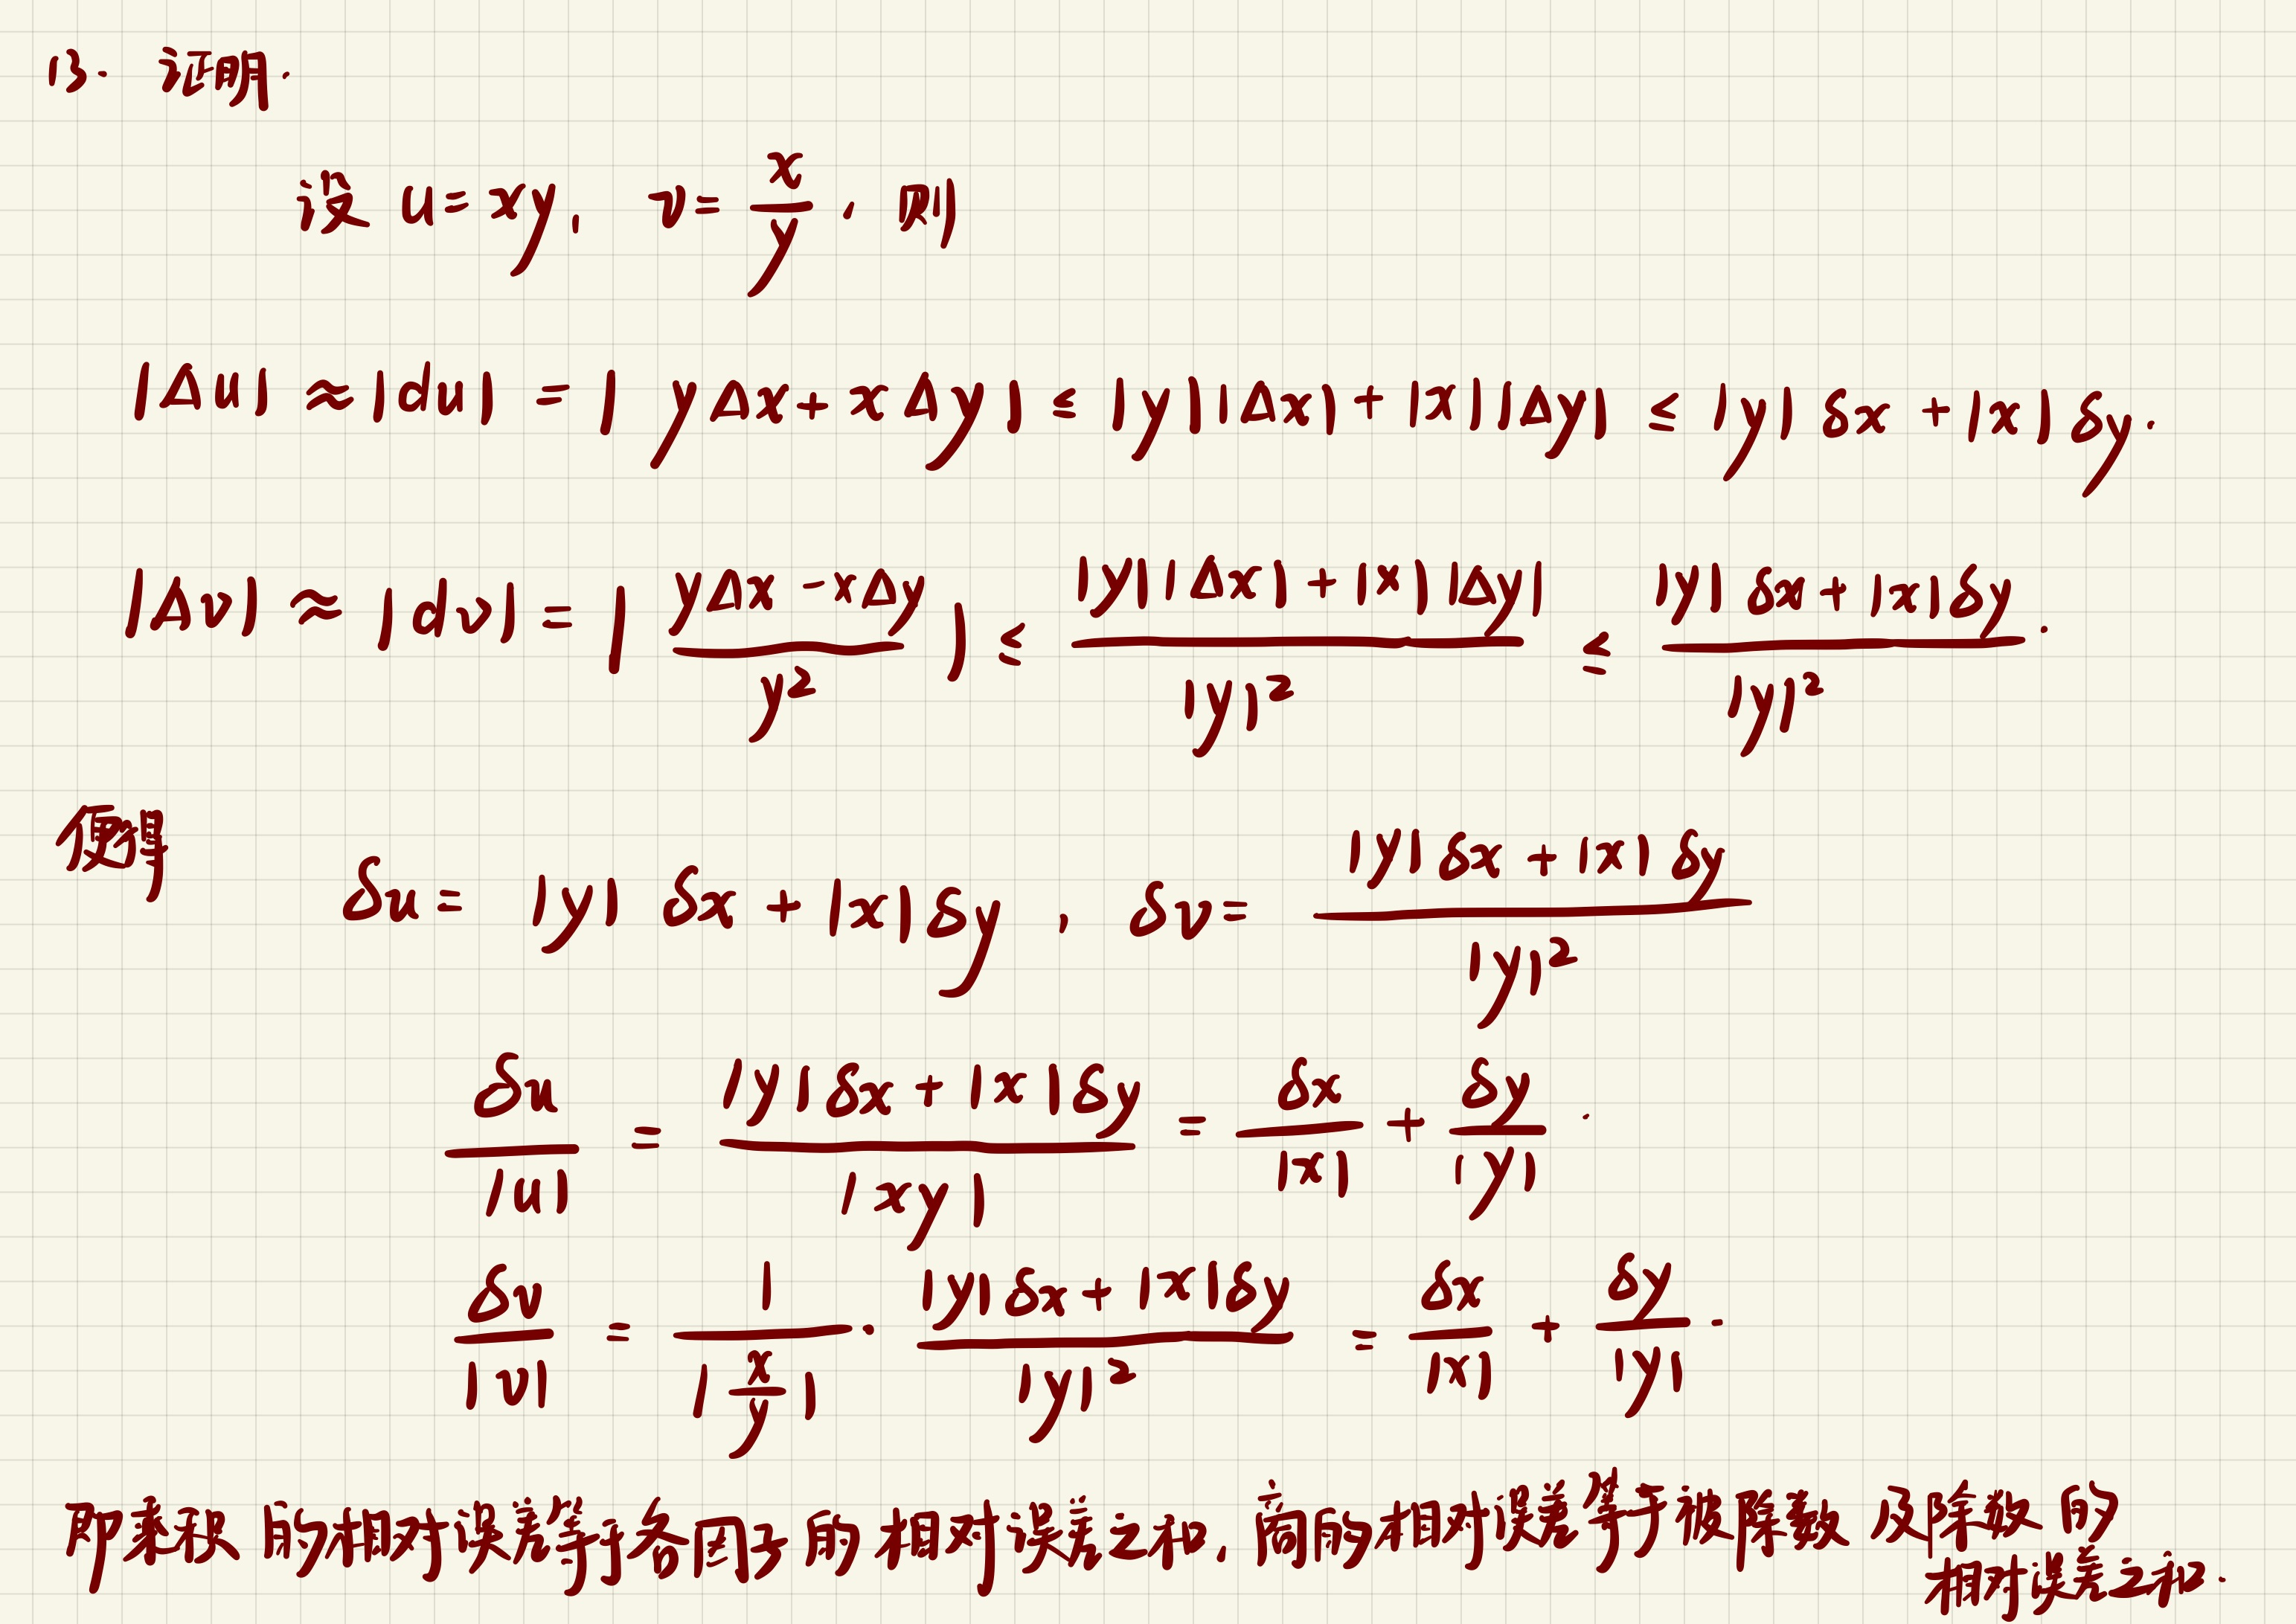 13. 证明.
设 u=xy, v=x/y, 则
|Δu| ≈ |du| = | yΔx + xΔy | ≤ |y||Δx| + |x||Δy| ≤ |y| δx + |x| δy.
|Δv| ≈ |dv| = | (yΔx - xΔy)/y² | ≤ (|y||Δx| + |x||Δy|)/|y|² ≤ (|y| δx + |x| δy)/|y|².
便得
δu = |y| δx + |x| δy, δv = (|y| δx + |x| δy)/|y|²
δu/|u| = (|y| δx + |x| δy)/|xy| = δx/|x| + δy/|y|.
δv/|v| = 1/|x/y| · (|y| δx + |x| δy)/|y|² = δx/|x| + δy/|y|.
即乘积的相对误差等于各因子的相对误差之和, 商的相对误差等于被除数及除数的
相对误差之和.